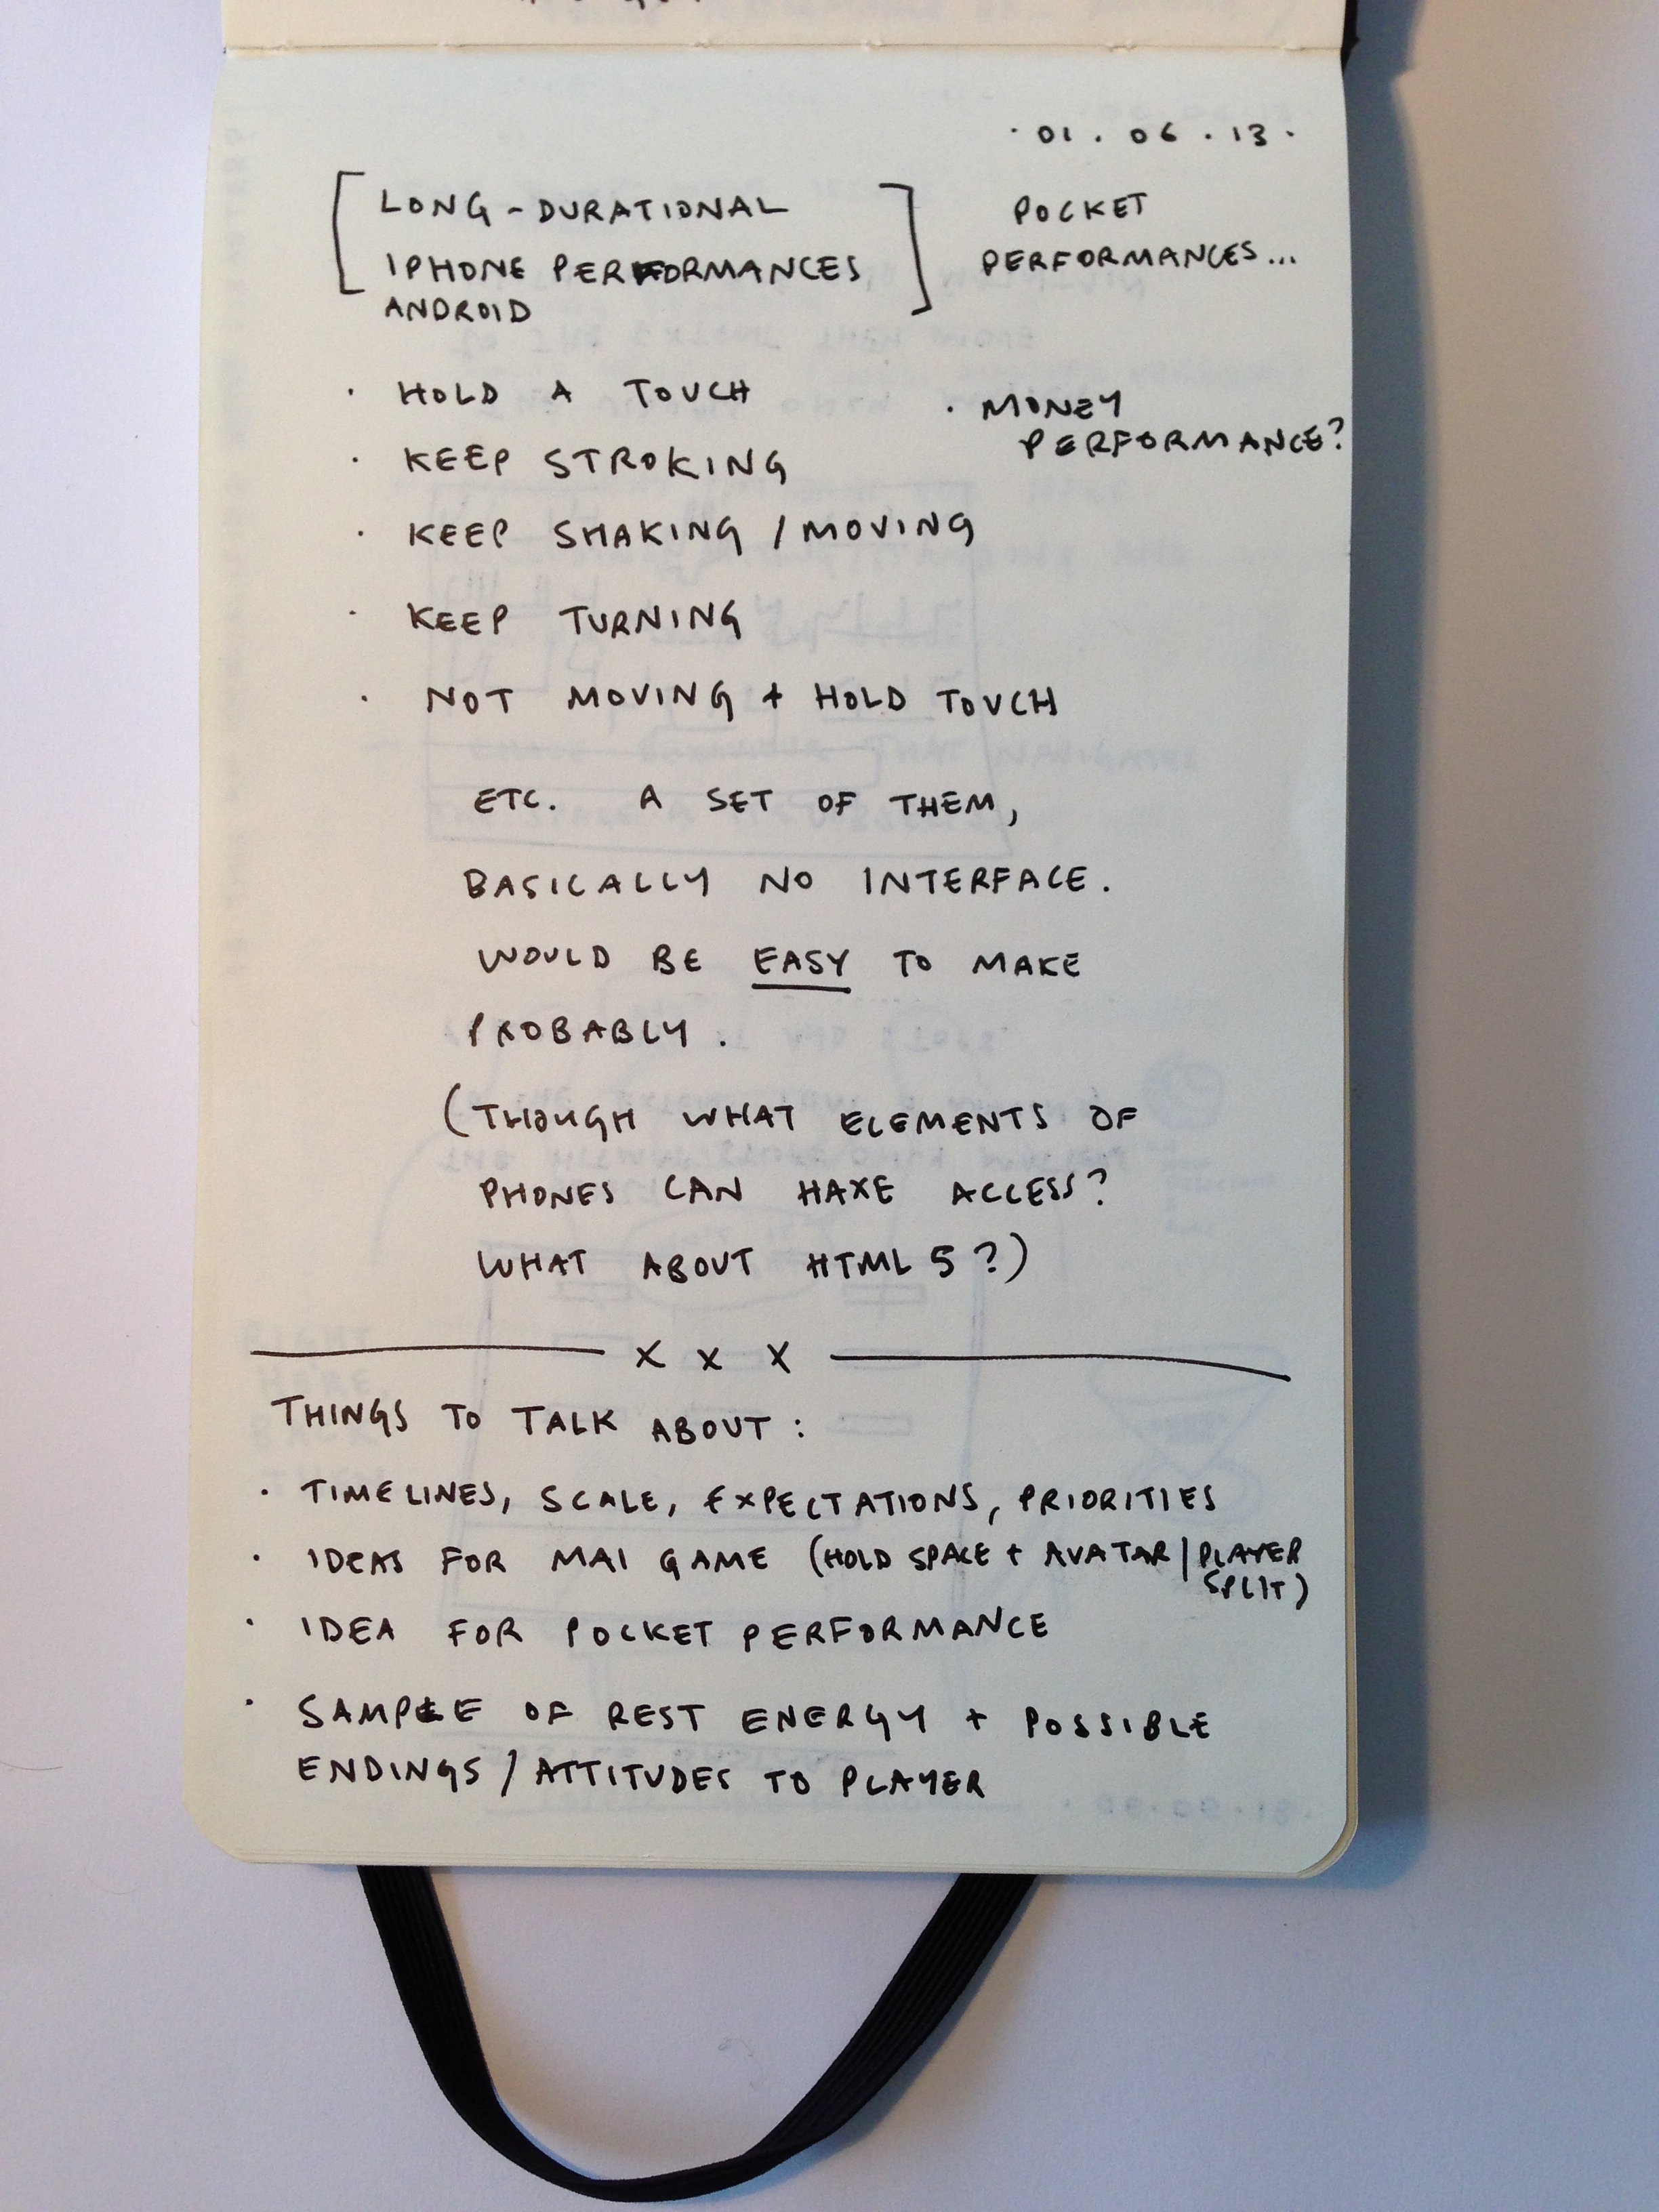 · 01 . 06 . 13 ·
[ LONG-DURATIONAL
IPHONE PERFORMANCES ]
ANDROID
POCKET
PERFORMANCES...
· HOLD A TOUCH
· MONEY
PERFORMANCE?
· KEEP STROKING
· KEEP SHAKING / MOVING
· KEEP TURNING
· NOT MOVING + HOLD TOUCH
ETC. A SET OF THEM,
BASICALLY NO INTERFACE.
WOULD BE EASY TO MAKE
PROBABLY.
(THOUGH WHAT ELEMENTS OF
PHONES CAN HAXE ACCESS?
WHAT ABOUT HTML 5?)
X X X
THINGS TO TALK ABOUT:
· TIMELINES, SCALE, EXPECTATIONS, PRIORITIES
· IDEAS FOR MAI GAME (HOLD SPACE + AVATAR | PLAYER
SPLIT)
· IDEA FOR POCKET PERFORMANCE
· SAMPLE OF REST ENERGY + POSSIBLE
ENDINGS / ATTITUDES TO PLAYER